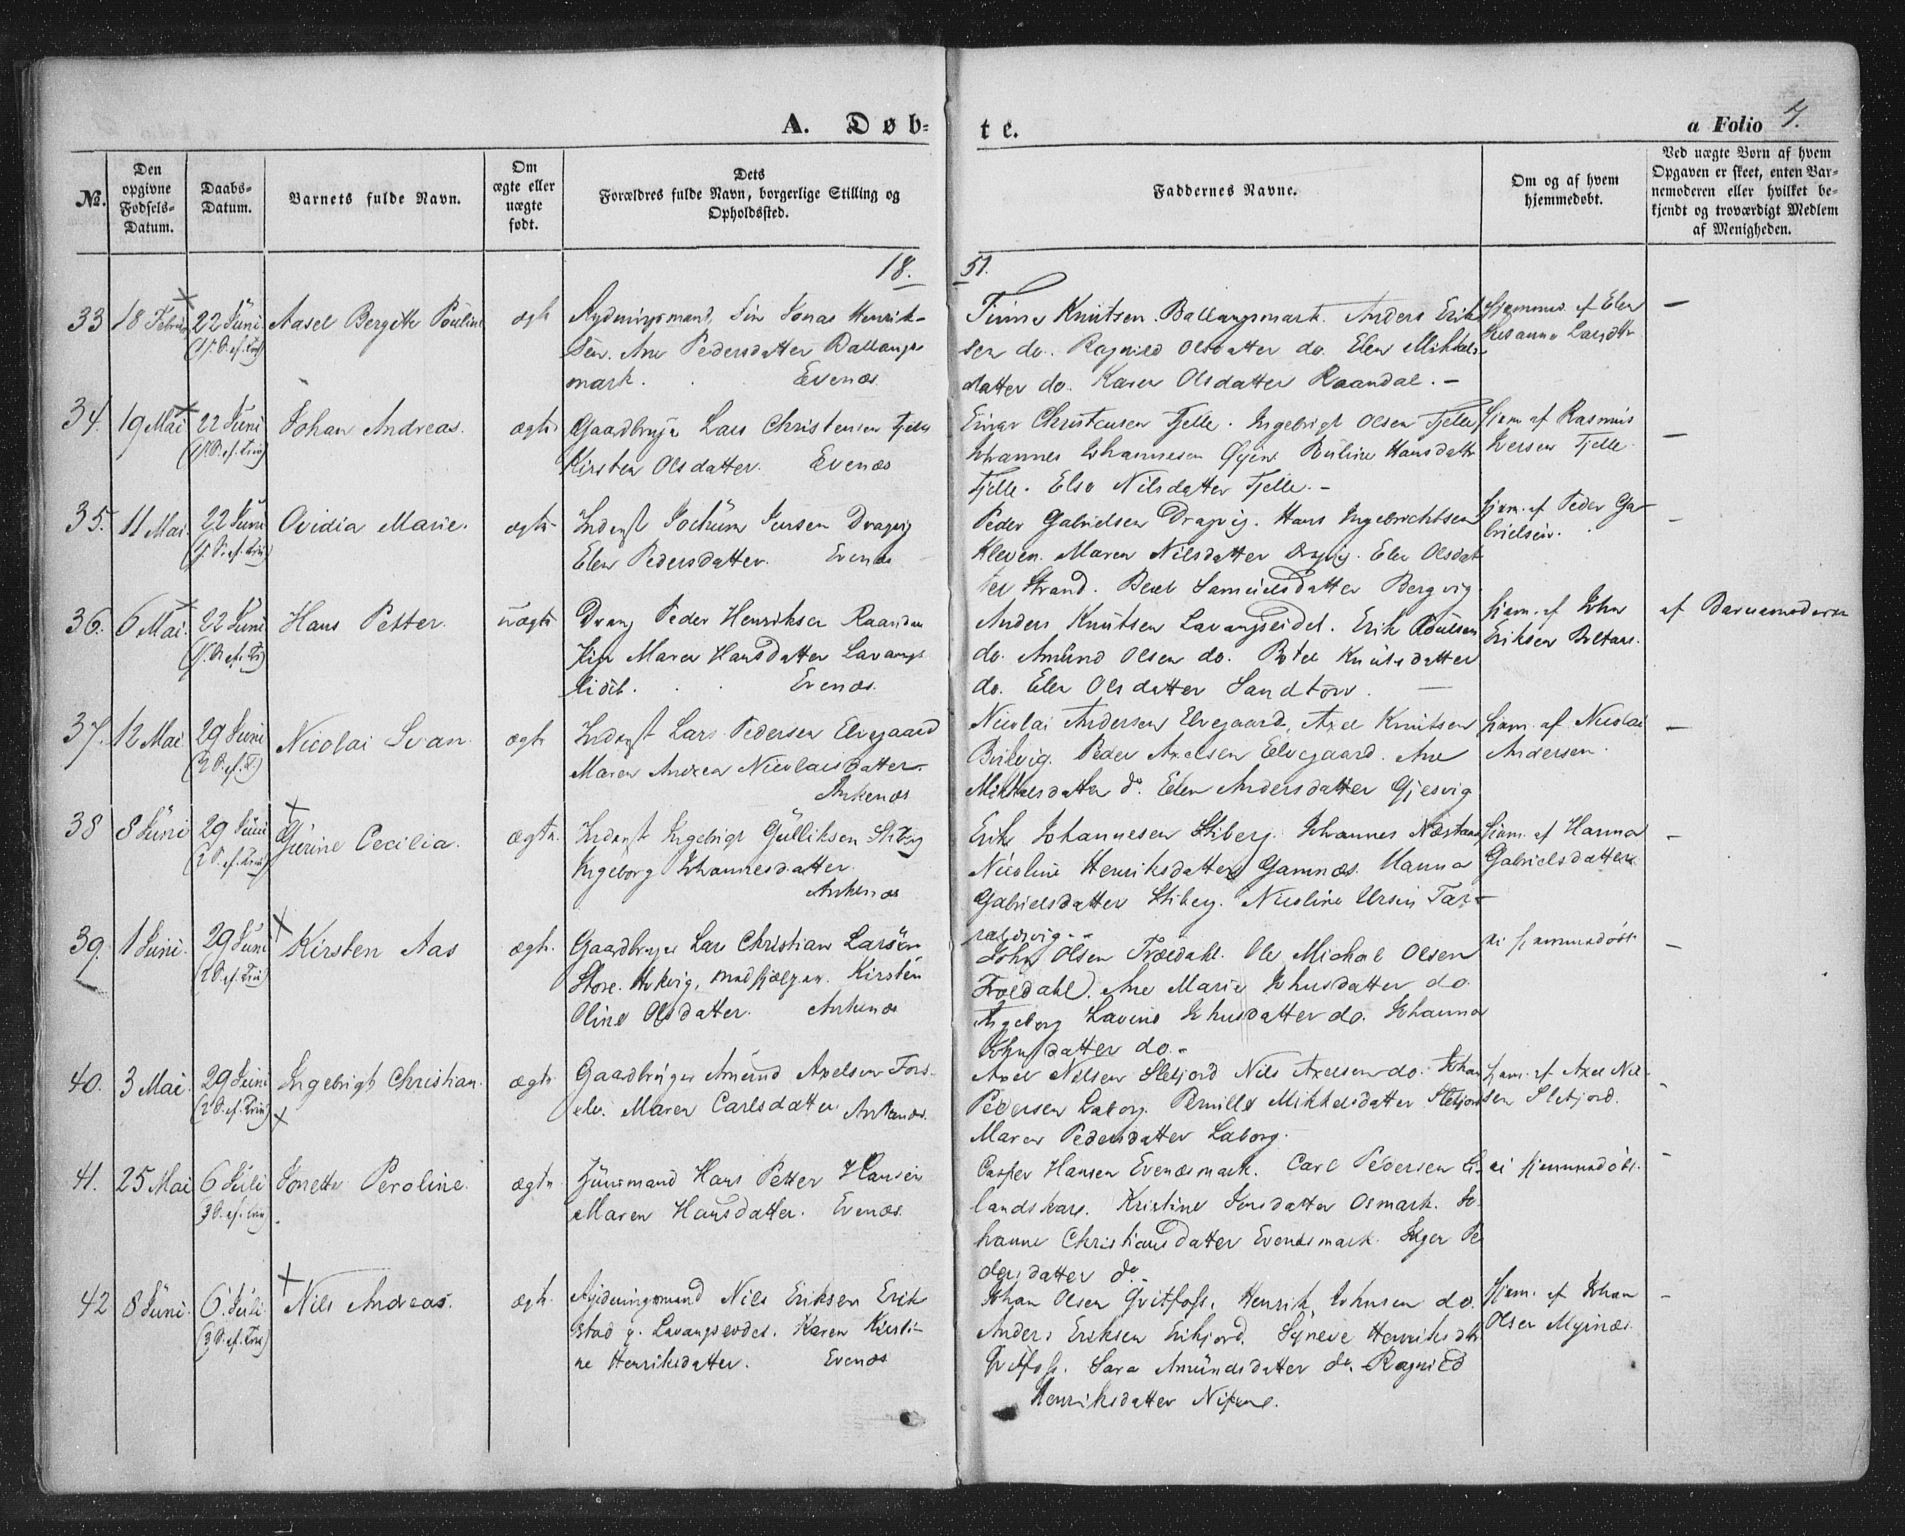 A. Døb-
te.
a Folio 4.
№.
Den opgivne Fødsels-Datum.
Daabs-Datum.
Barnets fulde Navn.
Om ægte eller uægte født.
Dets Forældres fulde Navn, borgerlige Stilling og Opholdssted.
Faddernes Navne.
Om og af hvem hjemmedøbt.
Ved uægte Børn af hvem Opgaven er skeet, enten Barnemoderen eller hvilket bekjendt og troværdigt Medlem af Menigheden.
18.
51.
33
18 Februar
22 Juni
(1 S. ef. Trin)
Aasel Bergitte Pouline
ægte
Rydningsmand, Fin Jonas Henrik-
sen. Ane Pedersdatter Ballangs-
mark. Evenæs.
Finne Knutsen Ballangsmark. Anders Erik
sen do. Ragnild Olsdatter do. Elen Mikkels-
datter do. Karen Olsdatter Raandal. -
Hjemmed. af Elen
Susanna Larsdtr
—
34.
19 Mai
22 Juni
(1 S. ef. Trin)
Johan Andreas.
ægte
Gaardbruger Lars Christensen Fjelle
Kirsten Olsdatter. Evenæs
Einar Christensen Fjelle. Ingebrigt Olsen Fjelle
Johannes Johannesen Øyen. Pauline Hansdattr
Fjelle. Else Nilsdatter Fjelle. -
hjem af Rasmus
Iversen Fjelle.
—
35.
11 Mai.
22 Juni
(1 S. ef. Trin)
Ovidia Marie.
ægte
Inderst Jochum Jensen Dragvig
Elen Pedersdatter. Evenæs
Peder Gabrielsen Dragvig. Hans Ingebrichtsen
Kleven. Maren Nilsdatter Dragvig. Elen Olsdat
ter Strand. Berit Samuelsdatter Bergvig.
hjem. af Peder Ga-
brielsen.
-
36.
6 Mai.
22 Juni
(1 S. ef. Tr)
Hans Petter.
uægte
Dreng Peder Henriksen Raandan
Pige Maren Hansdatter Lavangs
eidet. Evenæs.
Anders Knutsen Lavangseidet. Erik Poulsen
do. Amund Olsen do. Botel Knutsdatter
do. Elen Olsdatter Sandtorv. —
hjem. af John
Eriksen Boltaas.
af Barnemoderen
37.
12 Mai
29 Juni
(2 S. ef. T)
Nicolai Svan
ægte
Inderst Lars Pedersen Elvegaard
Maren Andrea Nicolaisdatter.
Ankenæs
Nicolai Andersen Elvegaard, Axel Knutsen
Beilvig. Peder Axelsen Elvegaard. Ane
Mikkelsdatter do. Elen Andersdatter Gjesvig
hjem. af Nicolai
Andersen.
—
38
8 Juni
29 Juni
(2 S. ef. Trin)
Gjurine Cecilia.
ægte.
Inderst Ingebrigt Gulliksen Stiberg
Ingeborg Johannesdatter.
Ankenæs
Erik Johannesen Stiberg. Johannes Næstaas
Nicoline Henriksdatter Gamnæs. Hanna
Gabrielsdatter Stiberg. Nicoline Ursin Tar-
raldsvig. -
hjem. af Hanna
Gabrielsdatter
-
39.
1 Juni.
29 Juni
(2 S. ef. Trin)
Kirsten Aas
ægte.
Gaardbruger Lars Christian Larsen
Store Hokvig, medhjælper. Kirsten
Oline Olsdatter. Ankenæs
John Olsen Trældahl. Ole Michal Olsen
Trældahl. Ane Marie Johnsdatter do.
Ingeborg Lavine Johnsdatter do. Johanna
Johnsdatter do. -
ei hjemmedøbt.
—
40.
3 Mai.
29 Juni
(2 S. ef. Trin)
Ingebrigt Christian.
ægte
Gaardbruger Amund Axelsen Fors-
elv. Maren Carlsdatter Ankenæs.
Axel Nilsen Sletjord Nils Axelsen do. Johan
Pedersen Laberg. Pernille Mikkelsdatter Sletjord
Maren Pedersdatter Laberg.
hjem. af Axel Nil-
sen Sletjord.
-
41.
25 Mai
6 Juli
3 S. ef. Trin
Jonette Peroline
ægte
Huusmand Hans Petter Hansen
Maren Hansdatter. Evenæs.
Casper Hansen Evenæsmark. Carl Pedersen
landskar. Kristine Jonsdatter Osmark. Jo-
hanne Christiansdatter Evenæsmark. Inger Pe
dersdatter do. -
ei hjemmedøbt.
-
42
8 Juni.
6 Juli
(3 S. ef. Trin)
Nils Andreas.
ægte.
Rydningsmand Nils Eriksen Erik
stad p. Lavangseidet. Karen Kirsti-
ne Henriksdatter. Evenæs
Johan Olsen Qvitfoss, Henrik Johnsen do.
Anders Eriksen Erikjord. Synneve Henriksdtr
Qvitfoss. Sara Amundsdatter do. Ragnild
Henriksdatter
hjem. af Johan
Olsen Myrnæs.
-